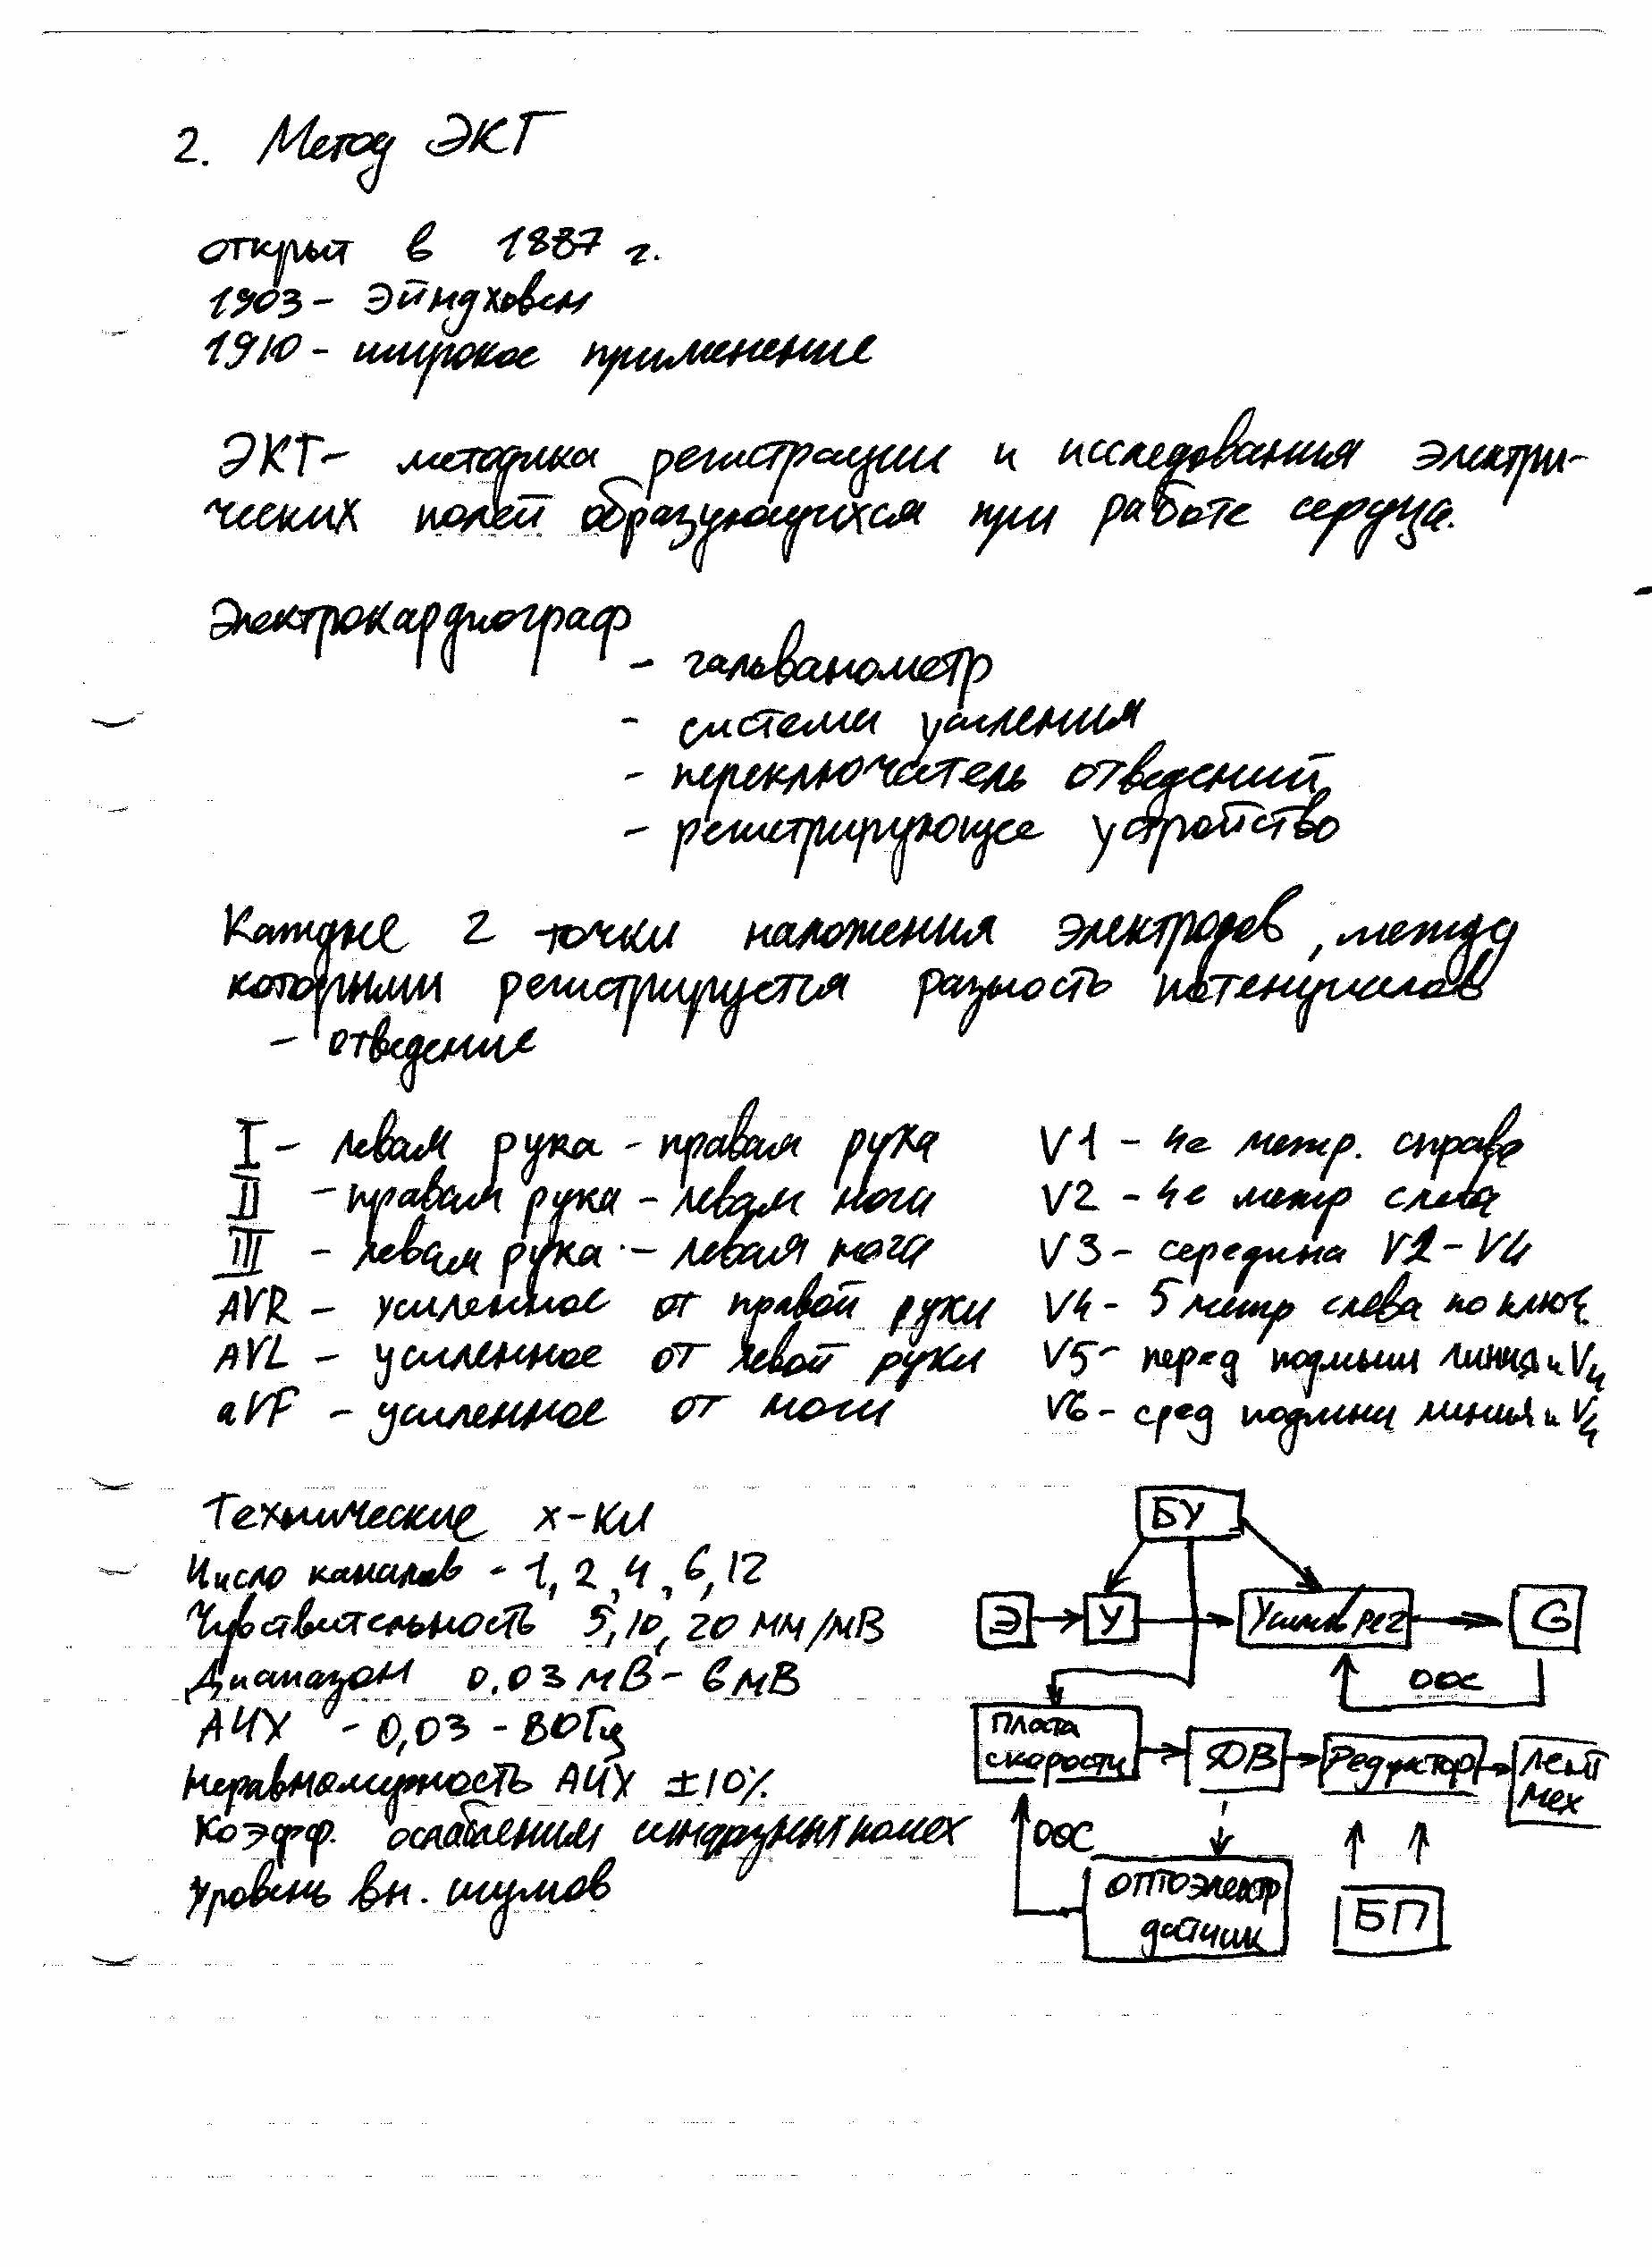 2. Метод ЭКГ
открыт в 1887 г.
1903 - Эйндховен
1910 - широкое применение
ЭКГ - методика регистрации и исследования электри-
ческих полей образующихся при работе сердца.
Электрокардиограф
- гальванометр
- система усиления
- переключатель отведений
- регистрирующее устройство
Каждые 2 точки наложения электродов, между
которыми регистрируется разность потенциалов
- отведение
I - левая рука - правая рука
II - правая рука - левая нога
III - левая рука - левая нога
AVR - усиленное от правой руки
AVL - усиленное от левой руки
aVF - усиленное от ноги
V1 - 4е межр. справа
V2 - 4е межр слева
V3 - середина V2 - V4
V4 - 5 межр слева по ключ.
V5 - перед подмыш линия и V4
V6 - сред подмыш линия и V4
Технические х-ки
Число каналов - 1, 2, 4, 6, 12
Чувствительность 5, 10, 20 мм/мВ
Диапазон 0.03 мВ - 6 мВ
АЧХ - 0,03 - 80 Гц
Неравномерность АЧХ ±10%
Коэфф. ослабления синфазн помех
Уровень вн. шумов
БУ
Э У Усилив рег G
ООС
Плата
скорости
ДВ Редуктор Лент
мех
ООС
оптоэлектр
датчик
БП